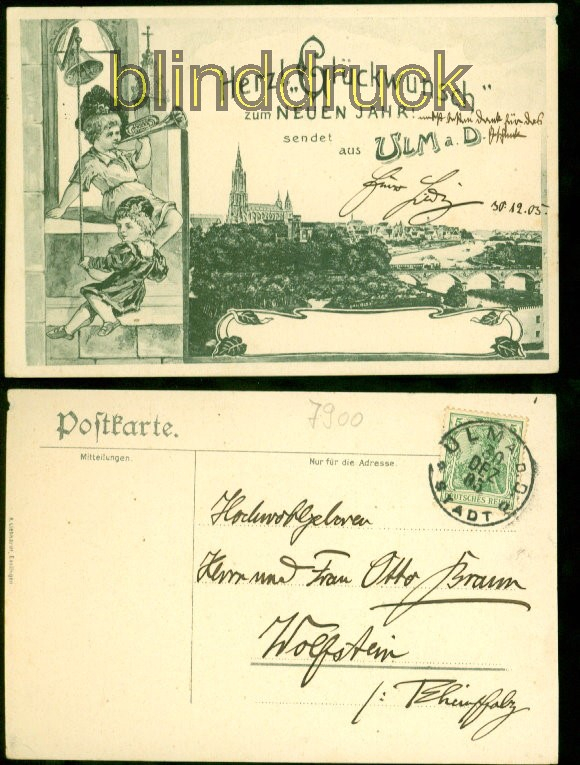 blinddruck
Herzl. Glückwunsch
zum NEUEN JAHR!
sendet
aus ULM a. D.
30.12.05.
Postkarte.
7900
Mitteilungen.
Nur für die Adresse.
ULM A. D. D.
30
DEZ
05
STADT
DEUTSCHES REICH
Hochwohlgeboren
Herrn und Frau Otto Braun
Wolfstein
/: Rheinpfalz